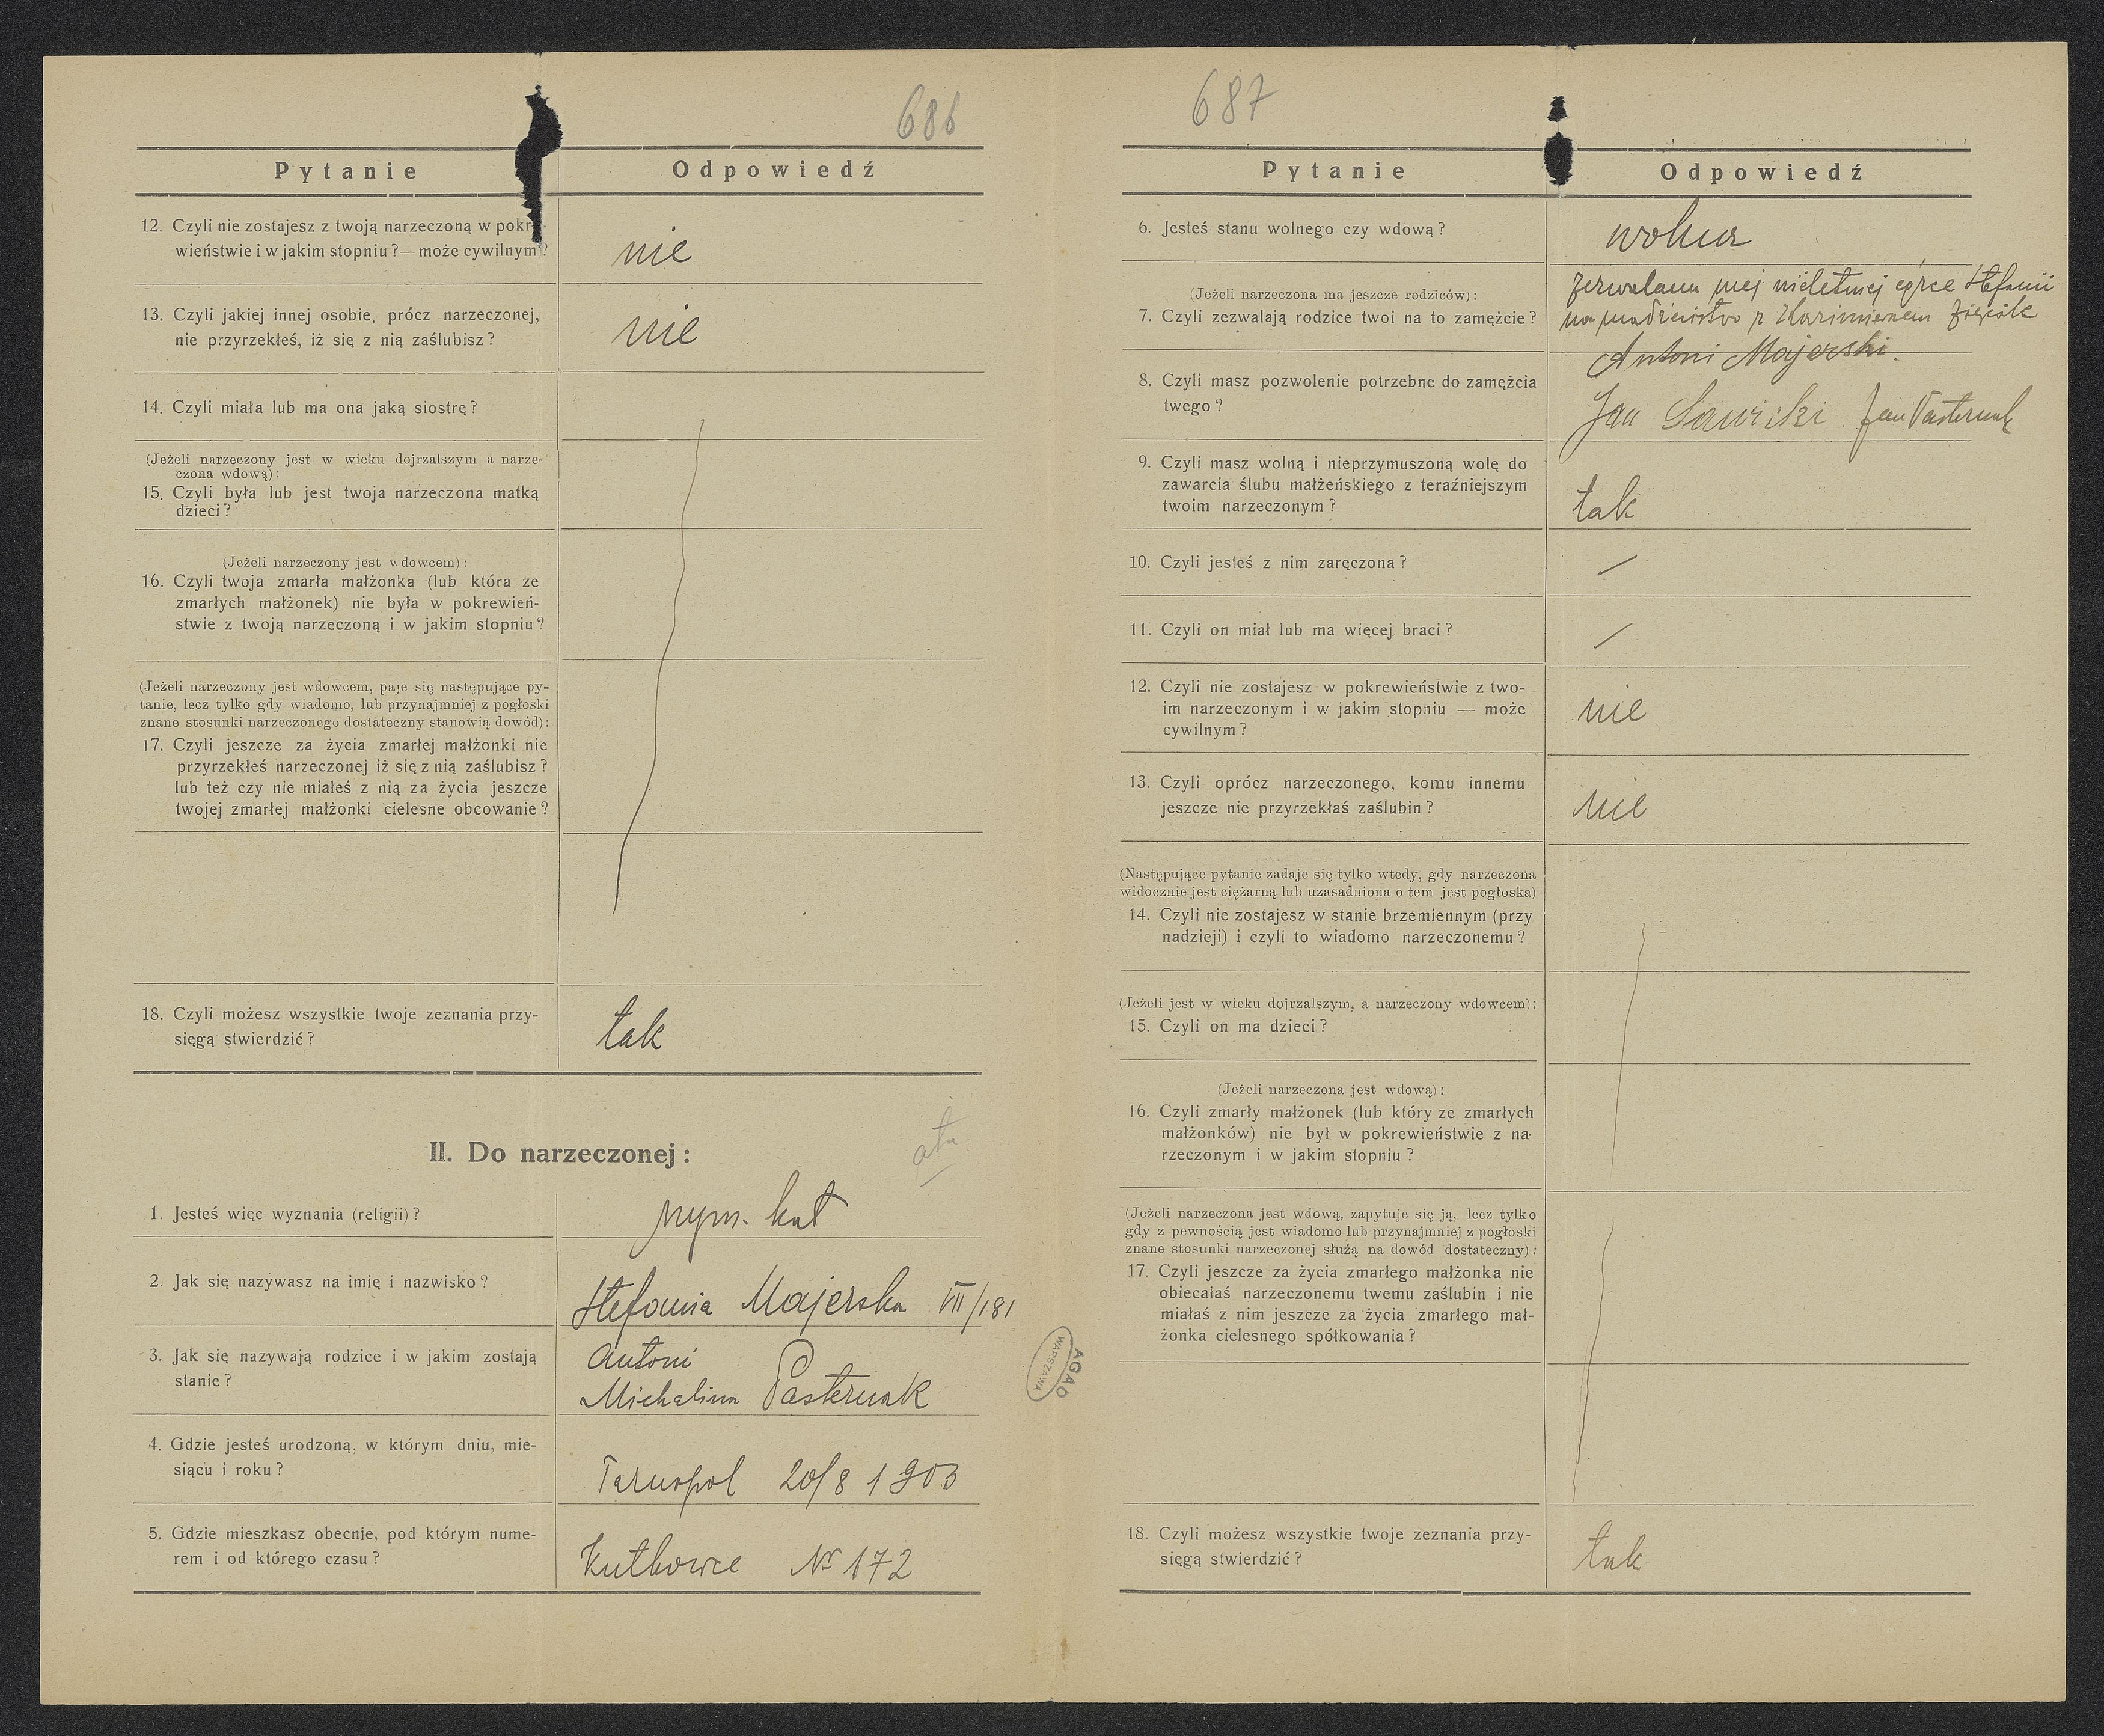 686
Pytanie Odpowiedź
12. Czyli nie zostajesz z twoją narzeczoną w pokre-
wieństwie i w jakim stopniu?—może cywilnym?
nie
13. Czyli jakiej innej osobie, prócz narzeczonej,
nie przyrzekłeś, iż się z nią zaślubisz?
nie
14. Czyli miała lub ma ona jaką siostrę?
(Jeżeli narzeczony jest w wieku dojrzalszym a narze-
czona wdową):
15. Czyli była lub jest twoja narzeczona matką
dzieci?
(Jeżeli narzeczony jest wdowcem):
16. Czyli twoja zmarła małżonka (lub która ze
zmarłych małżonek) nie była w pokrewień-
stwie z twoją narzeczoną i w jakim stopniu?
(Jeżeli narzeczony jest wdowcem, paje się następujące py-
tanie, lecz tylko gdy wiadomo, lub przynajmniej z pogłoski
znane stosunki narzeczonego dostateczny stanowią dowód):
17. Czyli jeszcze za życia zmarłej małżonki nie
przyrzekłeś narzeczonej iż się z nią zaślubisz?
lub też czy nie miałeś z nią za życia jeszcze
twojej zmarłej małżonki cielesne obcowanie?
18. Czyli możesz wszystkie twoje zeznania przy-
sięgą stwierdzić?
tak
II. Do narzeczonej:
1. Jesteś więc wyznania (religii)?
rzym. kat
2. Jak się nazywasz na imię i nazwisko?
Stefania Majerska VII/181
3. Jak się nazywają rodzice i w jakim zostają
stanie?
Antoni
Michalina Pasternak
4. Gdzie jesteś urodzoną, w którym dniu, mie-
siącu i roku?
Tarnopol 20/8 1903
5. Gdzie mieszkasz obecnie, pod którym nume-
rem i od którego czasu?
Kutkowce Nr 172
AGAD
WARSZAWA
687
Pytanie Odpowiedź
6. Jesteś stanu wolnego czy wdową?
wolna
(Jeżeli narzeczona ma jeszcze rodziców):
7. Czyli zezwalają rodzice twoi na to zamężcie?
Zezwalam mej nieletniej córce Stefanii
na małżeństwo z Kazimierzem
Antoni Majerski.
8. Czyli masz pozwolenie potrzebne do zamężcia
twego?
Jan Sawicki Jan Pasternak
9. Czyli masz wolną i nieprzymuszoną wolę do
zawarcia ślubu małżeńskiego z teraźniejszym
twoim narzeczonym?
tak
10. Czyli jesteś z nim zaręczona?
/
11. Czyli on miał lub ma więcej braci?
/
12. Czyli nie zostajesz w pokrewieństwie z two-
im narzeczonym i w jakim stopniu — może
cywilnym?
nie
13. Czyli oprócz narzeczonego, komu innemu
jeszcze nie przyrzekłaś zaślubin?
nie
(Następujące pytanie zadaje się tylko wtedy, gdy narzeczona
widocznie jest ciężarną lub uzasadniona o tem jest pogłoska)
14. Czyli nie zostajesz w stanie brzemiennym (przy
nadzieji) i czyli to wiadomo narzeczonemu?
(Jeżeli jest w wieku dojrzalszym, a narzeczony wdowcem):
15. Czyli on ma dzieci?
(Jeżeli narzeczona jest wdową):
16. Czyli zmarły małżonek (lub który ze zmarłych
małżonków) nie był w pokrewieństwie z na-
rzeczonym i w jakim stopniu?
(Jeżeli narzeczona jest wdową, zapytuje się ją, lecz tylko
gdy z pewnością jest wiadomo lub przynajmniej z pogłoski
znane stosunki narzeczonej służą na dowód dostateczny):
17. Czyli jeszcze za życia zmarłego małżonka nie
obiecałaś narzeczonemu twemu zaślubin i nie
miałaś z nim jeszcze za życia zmarłego mał-
żonka cielesnego spółkowania?
18. Czyli możesz wszystkie twoje zeznania przy-
sięgą stwierdzić?
tak